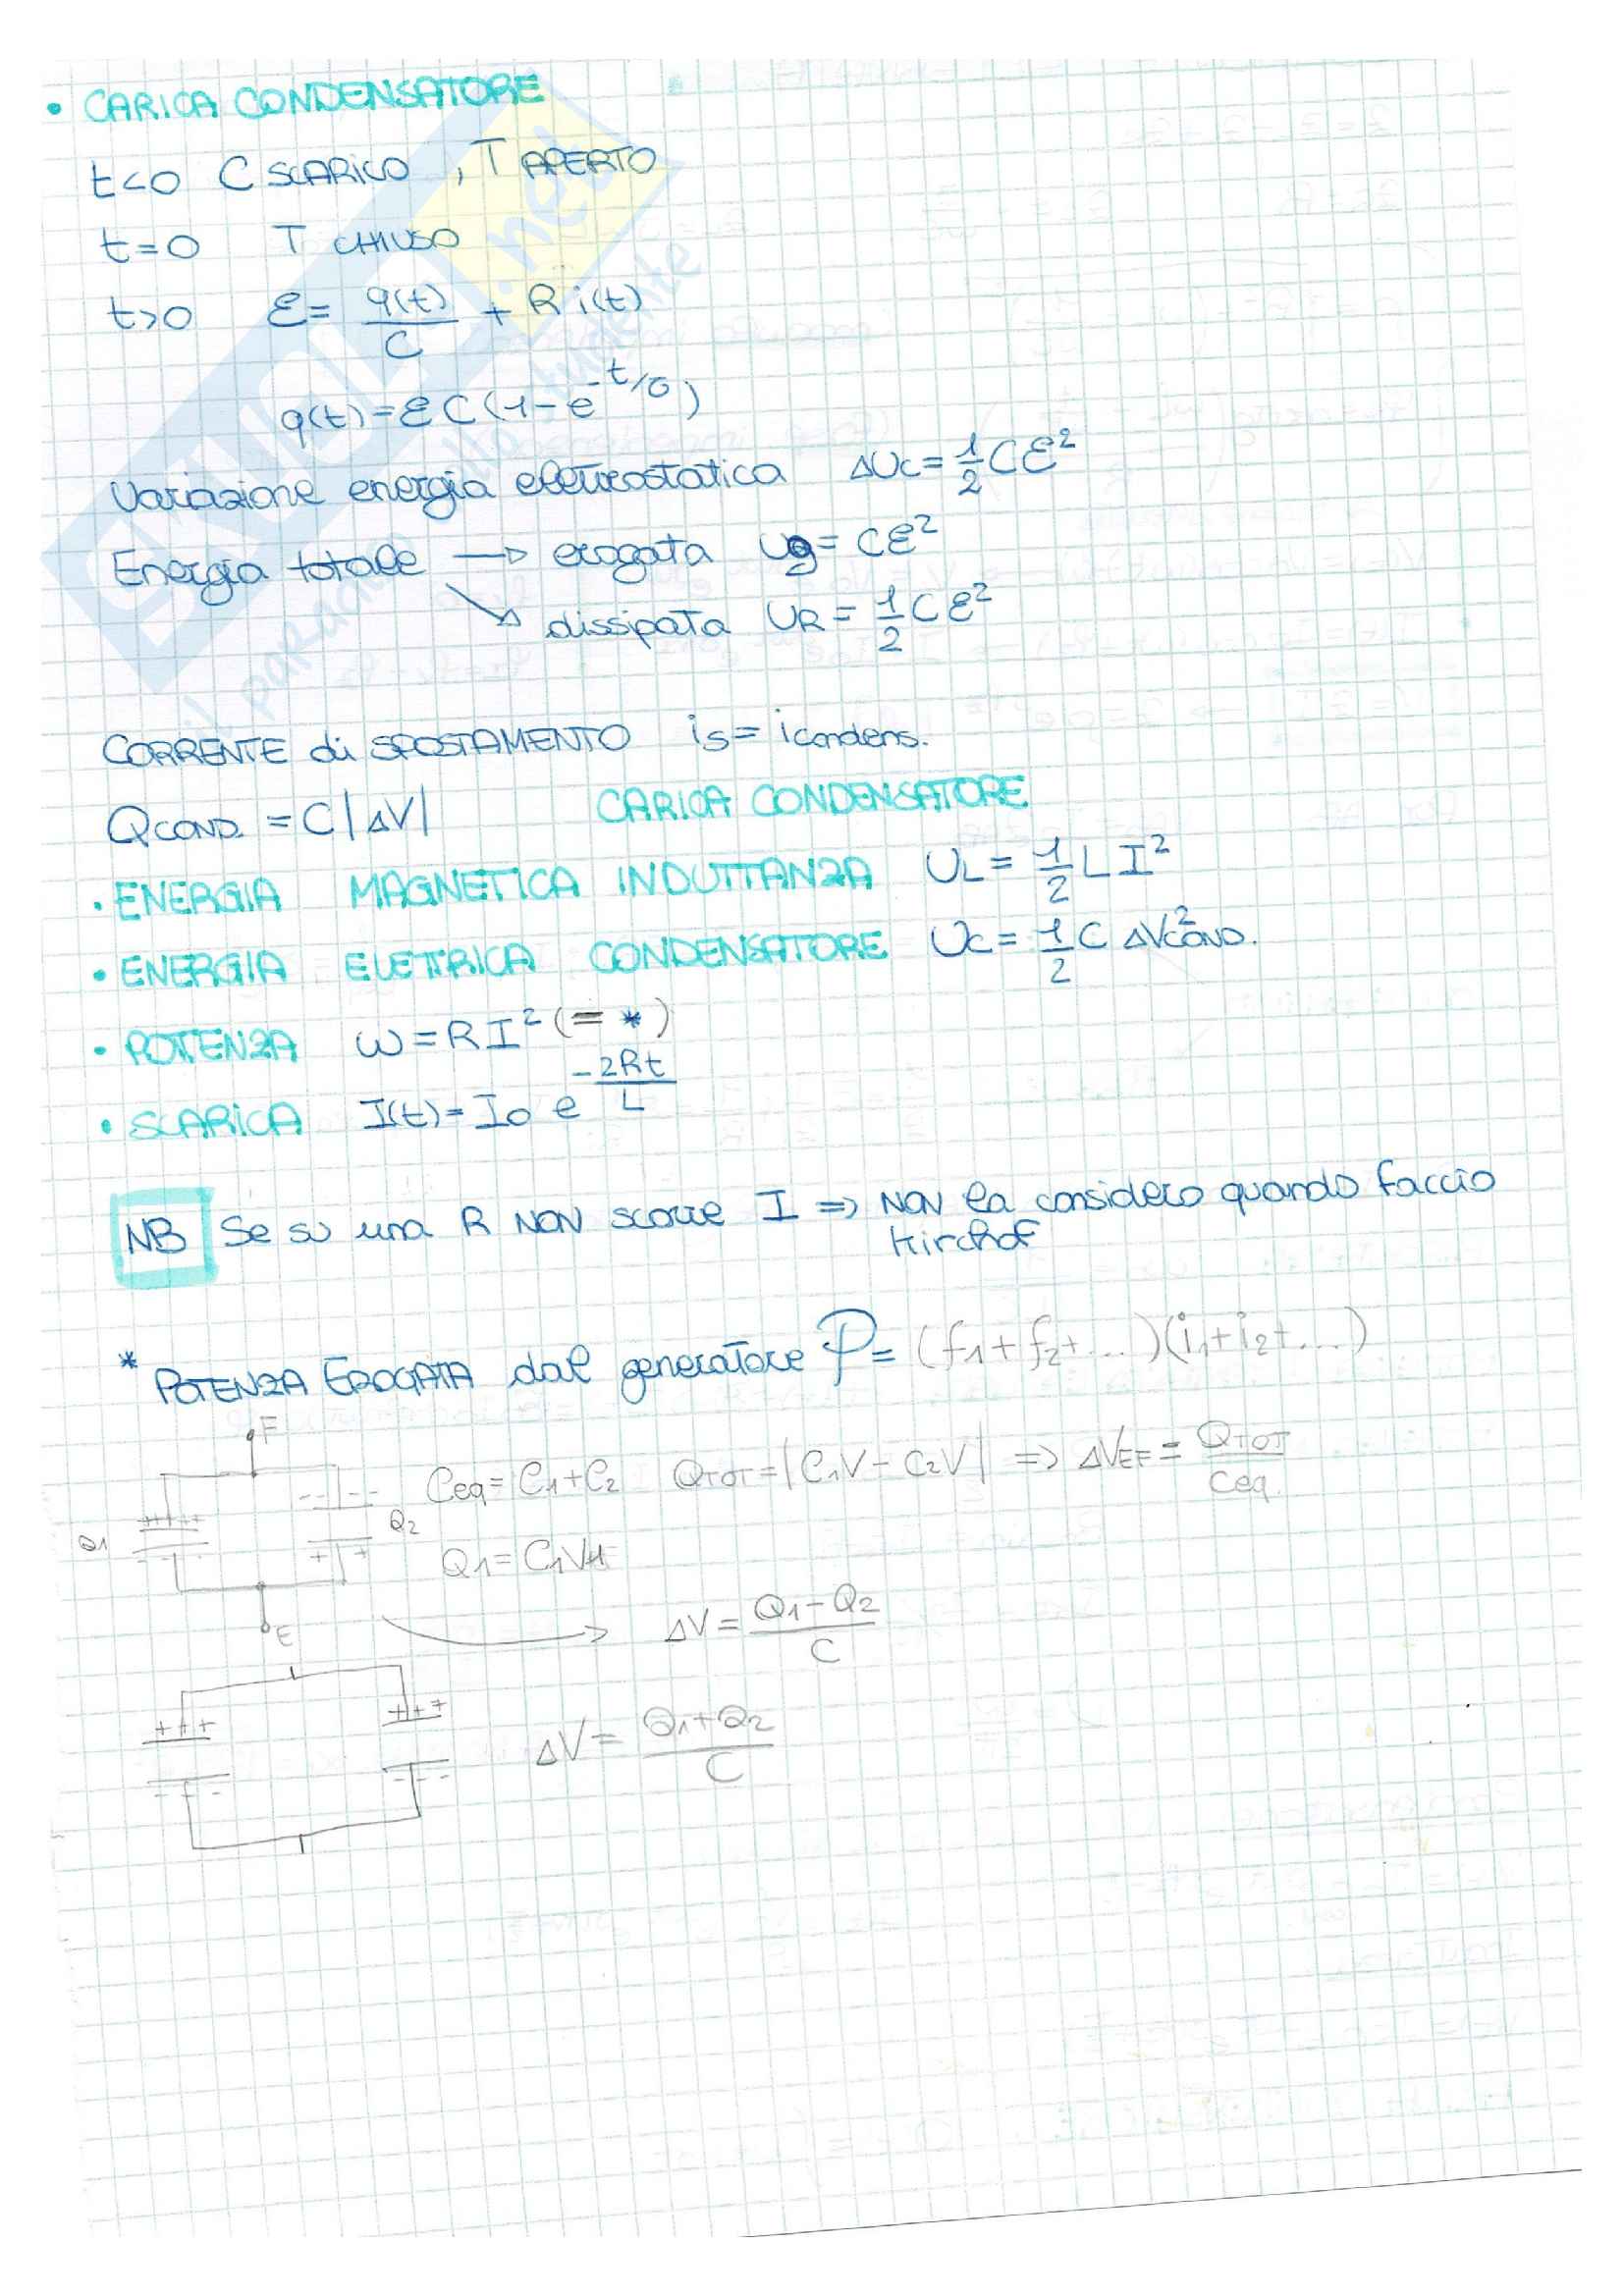 • CARICA CONDENSATORE
t<0 C SCARICO, T APERTO
t=0 T CHIUSO
t>0 ℰ= q(t)/C + R i(t)
q(t)=ℰC(1-e^-t/σ)
Variazione energia elettrostatica ΔUc=1/2 Cℰ²
Energia totale → erogata Ug= Cℰ²
↘ dissipata UR= 1/2 Cℰ²
CORRENTE di SPOSTAMENTO is= icondens.
QCOND. =C|ΔV| CARICA CONDENSATORE
• ENERGIA MAGNETICA INDUTTANZA UL= 1/2 L I²
• ENERGIA ELETTRICA CONDENSATORE Uc= 1/2 C ΔV²COND.
• POTENZA ω=RI² (= *)
• SCARICA I(t)=I0 e^-2Rt/L
NB Se su una R NON scorre I => NON la considero quando faccio
Kirchof
* POTENZA EROGATA dal generatore P= (f1+f2+...)(i1+i2+...)
F
Ceq=C1+C2 QTOT=|C1V-C2V| => ΔVEF= QTOT/Ceq.
Q1 Q2
Q1=C1V
E
ΔV= Q1-Q2/C
ΔV= Q1+Q2/C
SKUOLA.net
il paradiso dello studente